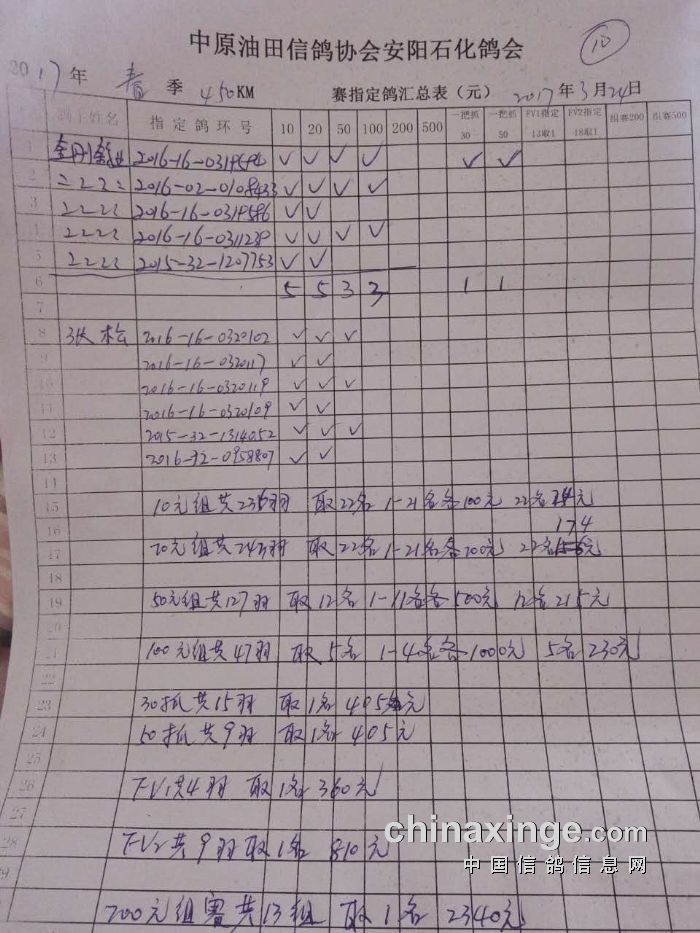 中原油田信鸽协会安阳石化鸽会
10
2017年 春 季 450KM 赛指定鸽汇总表（元） 2017年3月24日
鸽主姓名 指定鸽环号 10 20 50 100 200 500 一把抓30 一把抓50 FV1指定13取1 FV2指定18取1 组赛200 组赛500
1 2016-16-0319584 ✓ ✓ ✓ ✓ ✓ ✓
2 2016-02-0108433 ✓ ✓ ✓ ✓
3 2016-16-0319586 ✓ ✓
4 2016-16-0311239 ✓ ✓ ✓ ✓
5 2015-32-1207753 ✓ ✓
6 5 5 3 3 1 1
7
8 张松 2016-16-0320102 ✓ ✓ ✓
9 2016-16-0320117 ✓ ✓
10 2016-16-0320119 ✓ ✓ ✓
11 2016-16-0320109 ✓ ✓
12 2015-32-1314052 ✓ ✓ ✓
13 2016-12-0958807 ✓ ✓
14
15 10元组共236羽 取22名 1-21名各100元 22名元
16 174
17 20元组共243羽 取22名 1-21名各200元 22名元
18
19 50元组共127羽 取12名 1-11名各500元 12名215元
20
21 100元组共47羽 取5名 1-4名各1000元 5名230元
22
23 30抓共15羽 取1名 405元
24 50抓共9羽 取1名 405元
25
26 FV1共4羽 取1名 360元
27
28 FV2共9羽 取1名 810元
29
200元组赛共13组 取1名 2340元
chinaxinge.com
中国信鸽信息网